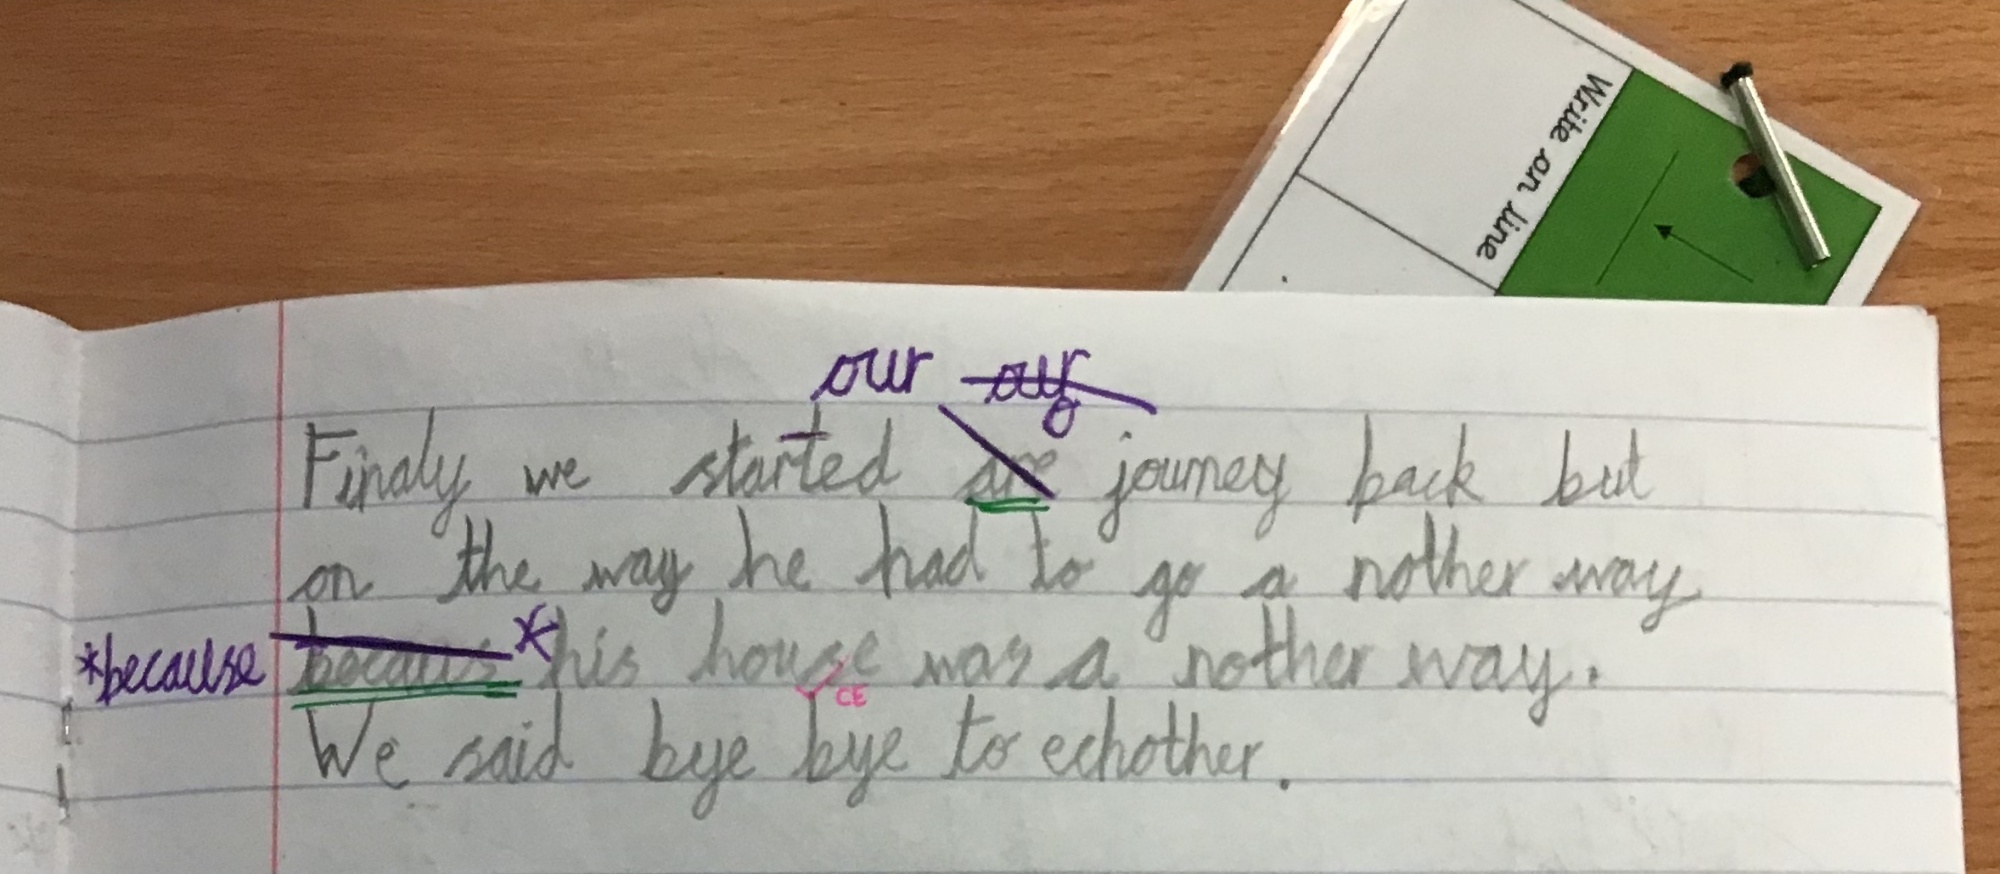 Write on line
our our
Finaly we started are journey back but
on the way he had to go a nother way
*because becaus * his house was a nother way.
CE
We said bye bye to echother.